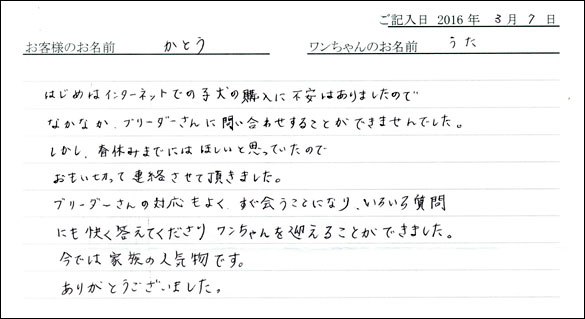 ご記入日 2016 年 3 月 7 日
お客様のお名前 かとう ワンちゃんのお名前 うた
はじめはインターネットでの子犬の購入に不安はありましたので
なかなか、ブリーダーさんに問い合わせすることができませんでした。
しかし、春休みまでにはほしいと思っていたので
おもい切って連絡させて頂きました。
ブリーダーさんの対応もよく、すぐ会うことになり、いろいろ質問
にも快く答えてくださり ワンちゃんを迎えることができました。
今では家族の人気物です。
ありがとうございました。